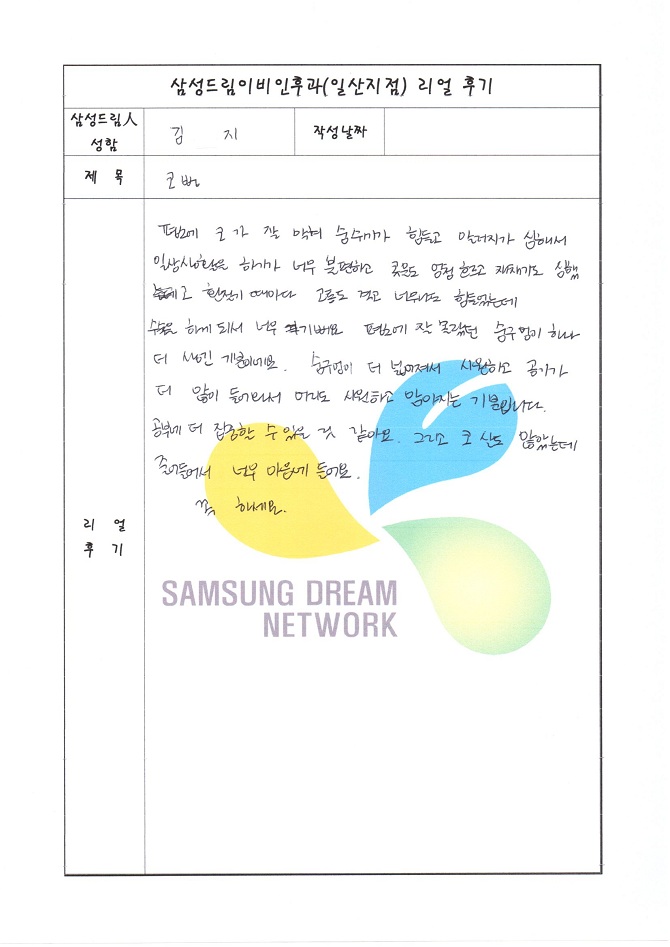 삼성드림이비인후과(일산지점) 리얼 후기
삼성드림人 성함
김 지
작성날짜
제 목
코뻥
리 얼 후 기
평소에 코가 잘 막혀 숨쉬기가 힘들고 알러지가 심해서
일상생활을 하기가 너무 불편하고 콧물도 엄청 흐르고 재채기도 심했
환절기 때마다 고통도 겪고 너무나도 힘들었는데
수술을 하게 되서 너무 기뻐요 평소에 잘 몰랐던 숨구멍이 하나
더 생긴 개념이에요. 숨구멍이 더 넓어져서 시원하고 공기가
더 많이 들어와서 머리도 시원하고 맑아지는 기분입니다.
공부에 더 집중할 수 있을 것 같아요. 그리고 코 살도 많았는데
줄어들어서 너무 마음에 들어요.
꼭 하세요.
SAMSUNG DREAM
NETWORK